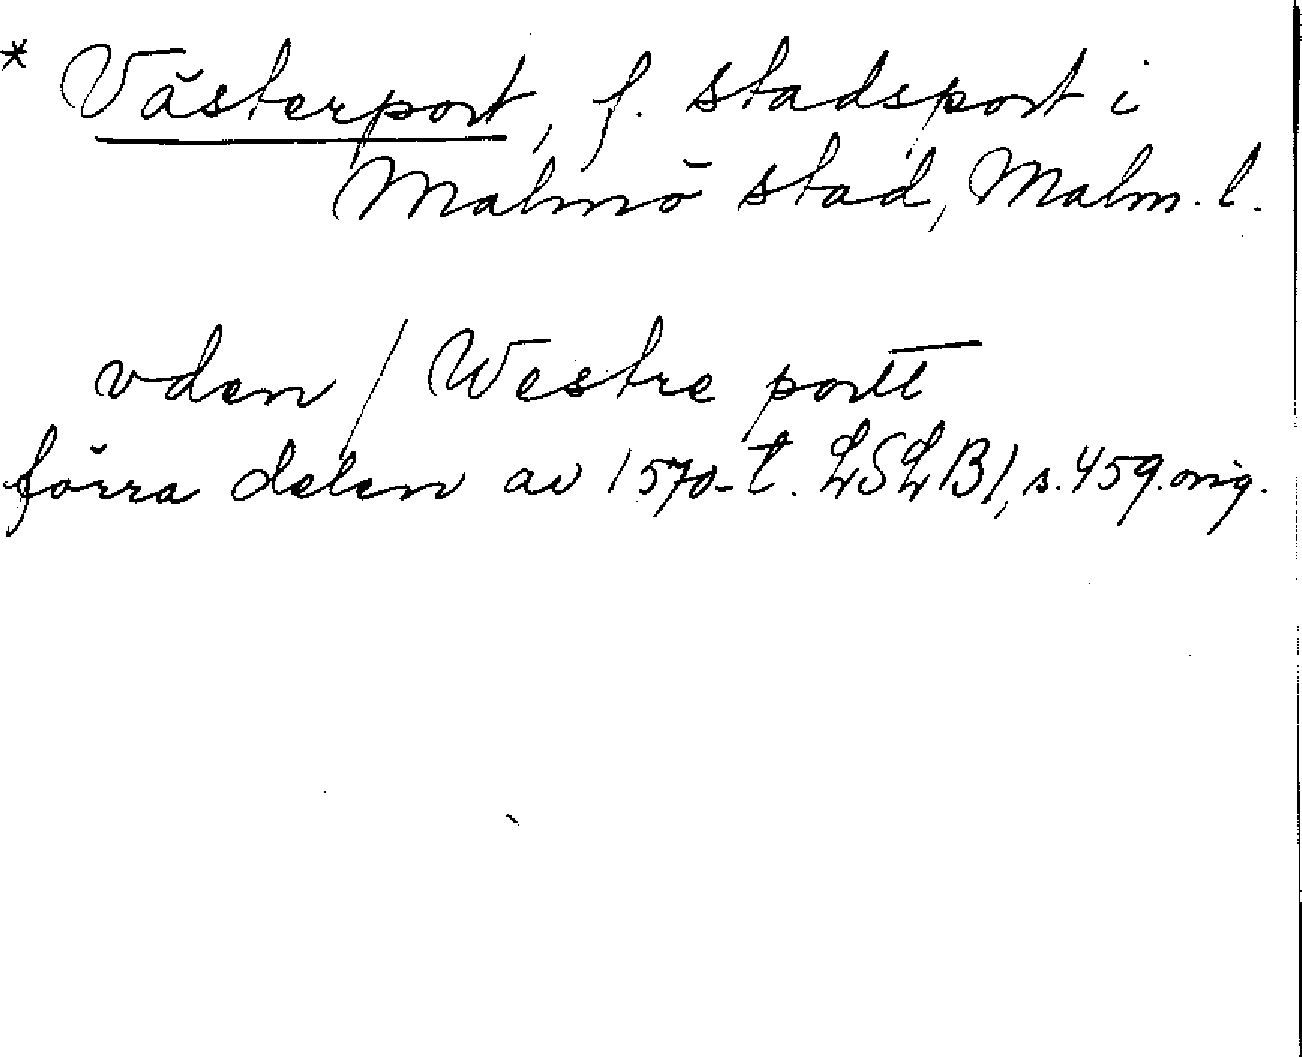 * Västerport, f. stadsport i
Malmö stad, Malm. l.
vden / Westre portt
förra delen av 1570-t. LSLB1, s. 459. orig.